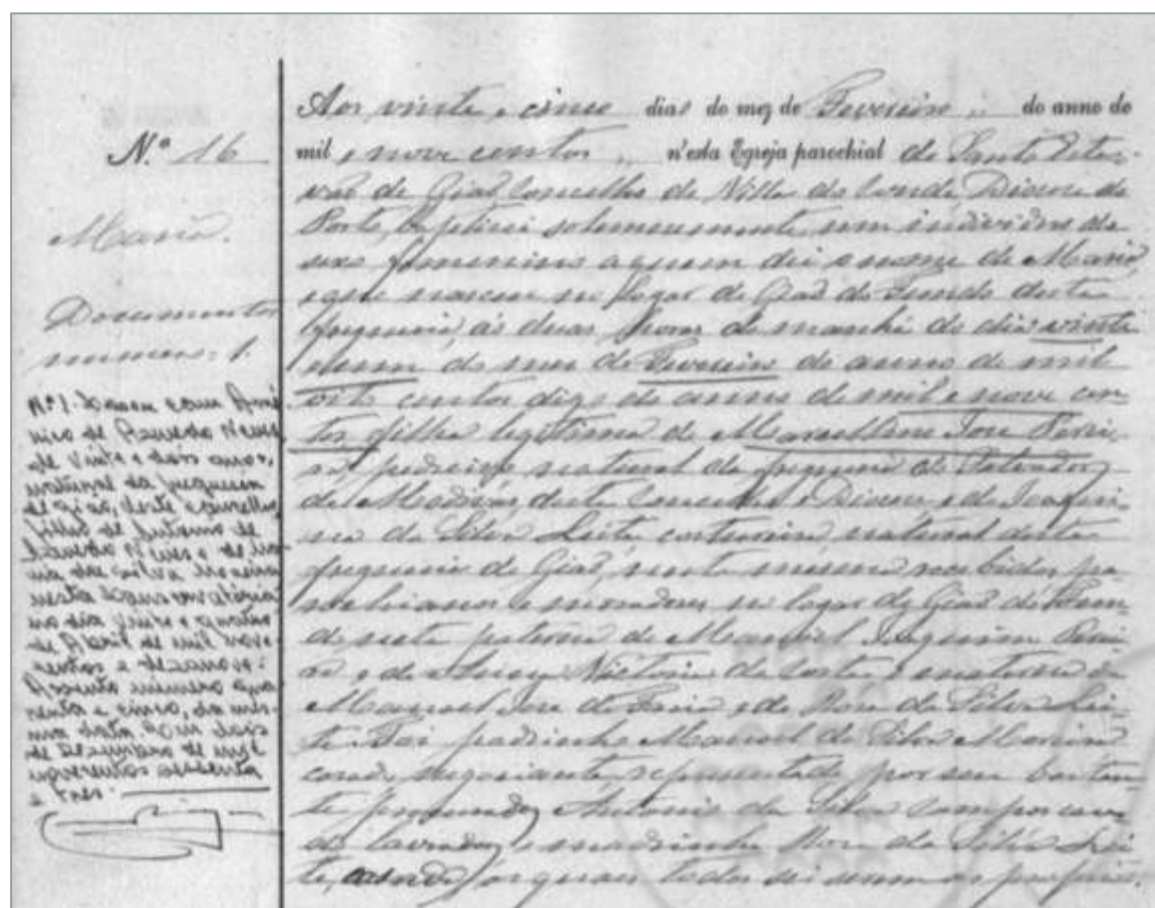 N.º 16
Maria.
Documento
numero: 1.
Nº1. Casou com Amé-
rico de Azevedo Neves
de vinte e dois anos,
natural da freguesia
de Gião, deste concelho,
filho de Antonio de
Azevedo Neves e de Ma-
ria da Silva Moreira
nesta Conservatória
no dia vinte e quatro
de Abril de mil nove-
centos e dezanove:
Assento numero qua-
renta e cinco, da mes-
ma data. Em dois
de de mil
novecentos e sessenta
e tres.
Aos vinte e cinco dias do mez de Fevereiro do anno de
mil e nove centos n'esta Egreja parochial de Santo Este-
vão de Gião Concelho de Villa do Conde, Diocese do
Porto, baptisei solemnemente um individuo do
sexo femenino a quem dei o nome de Maria,
e que nasceu no logar de Gião do Fundo desta
freguesia, ás duas horas da manhã do dia vinte
e um do mez de Fevereiro do anno de mil
oito centos digo do anno de mil e nove cen-
tos filha legitima de Marcellino José Perei-
ra pedreiro natural da freguesia do Salvador
de Modivas, deste Concelho e Diocese, e de Joaqui-
na da Silva Leite costureira natural desta
freguesia de Gião, nesta mesma recebidos, pa-
rochianos e moradores no logar de Gião do Fun-
do, neta paterna de Manoel Joaquim Perei-
ra e de Victoria da Costa e materna de
Manoel José de Faria e de Rosa da Silva Lei-
te. Foi padrinho Manoel da Silva Moreira
casado, negociante, representado por seu bastan-
te procurador Antonio da Silva Campos casa-
do lavrador e madrinha Rosa da Silva Lei-
te, casada, os quais todos sei serem os proprios.